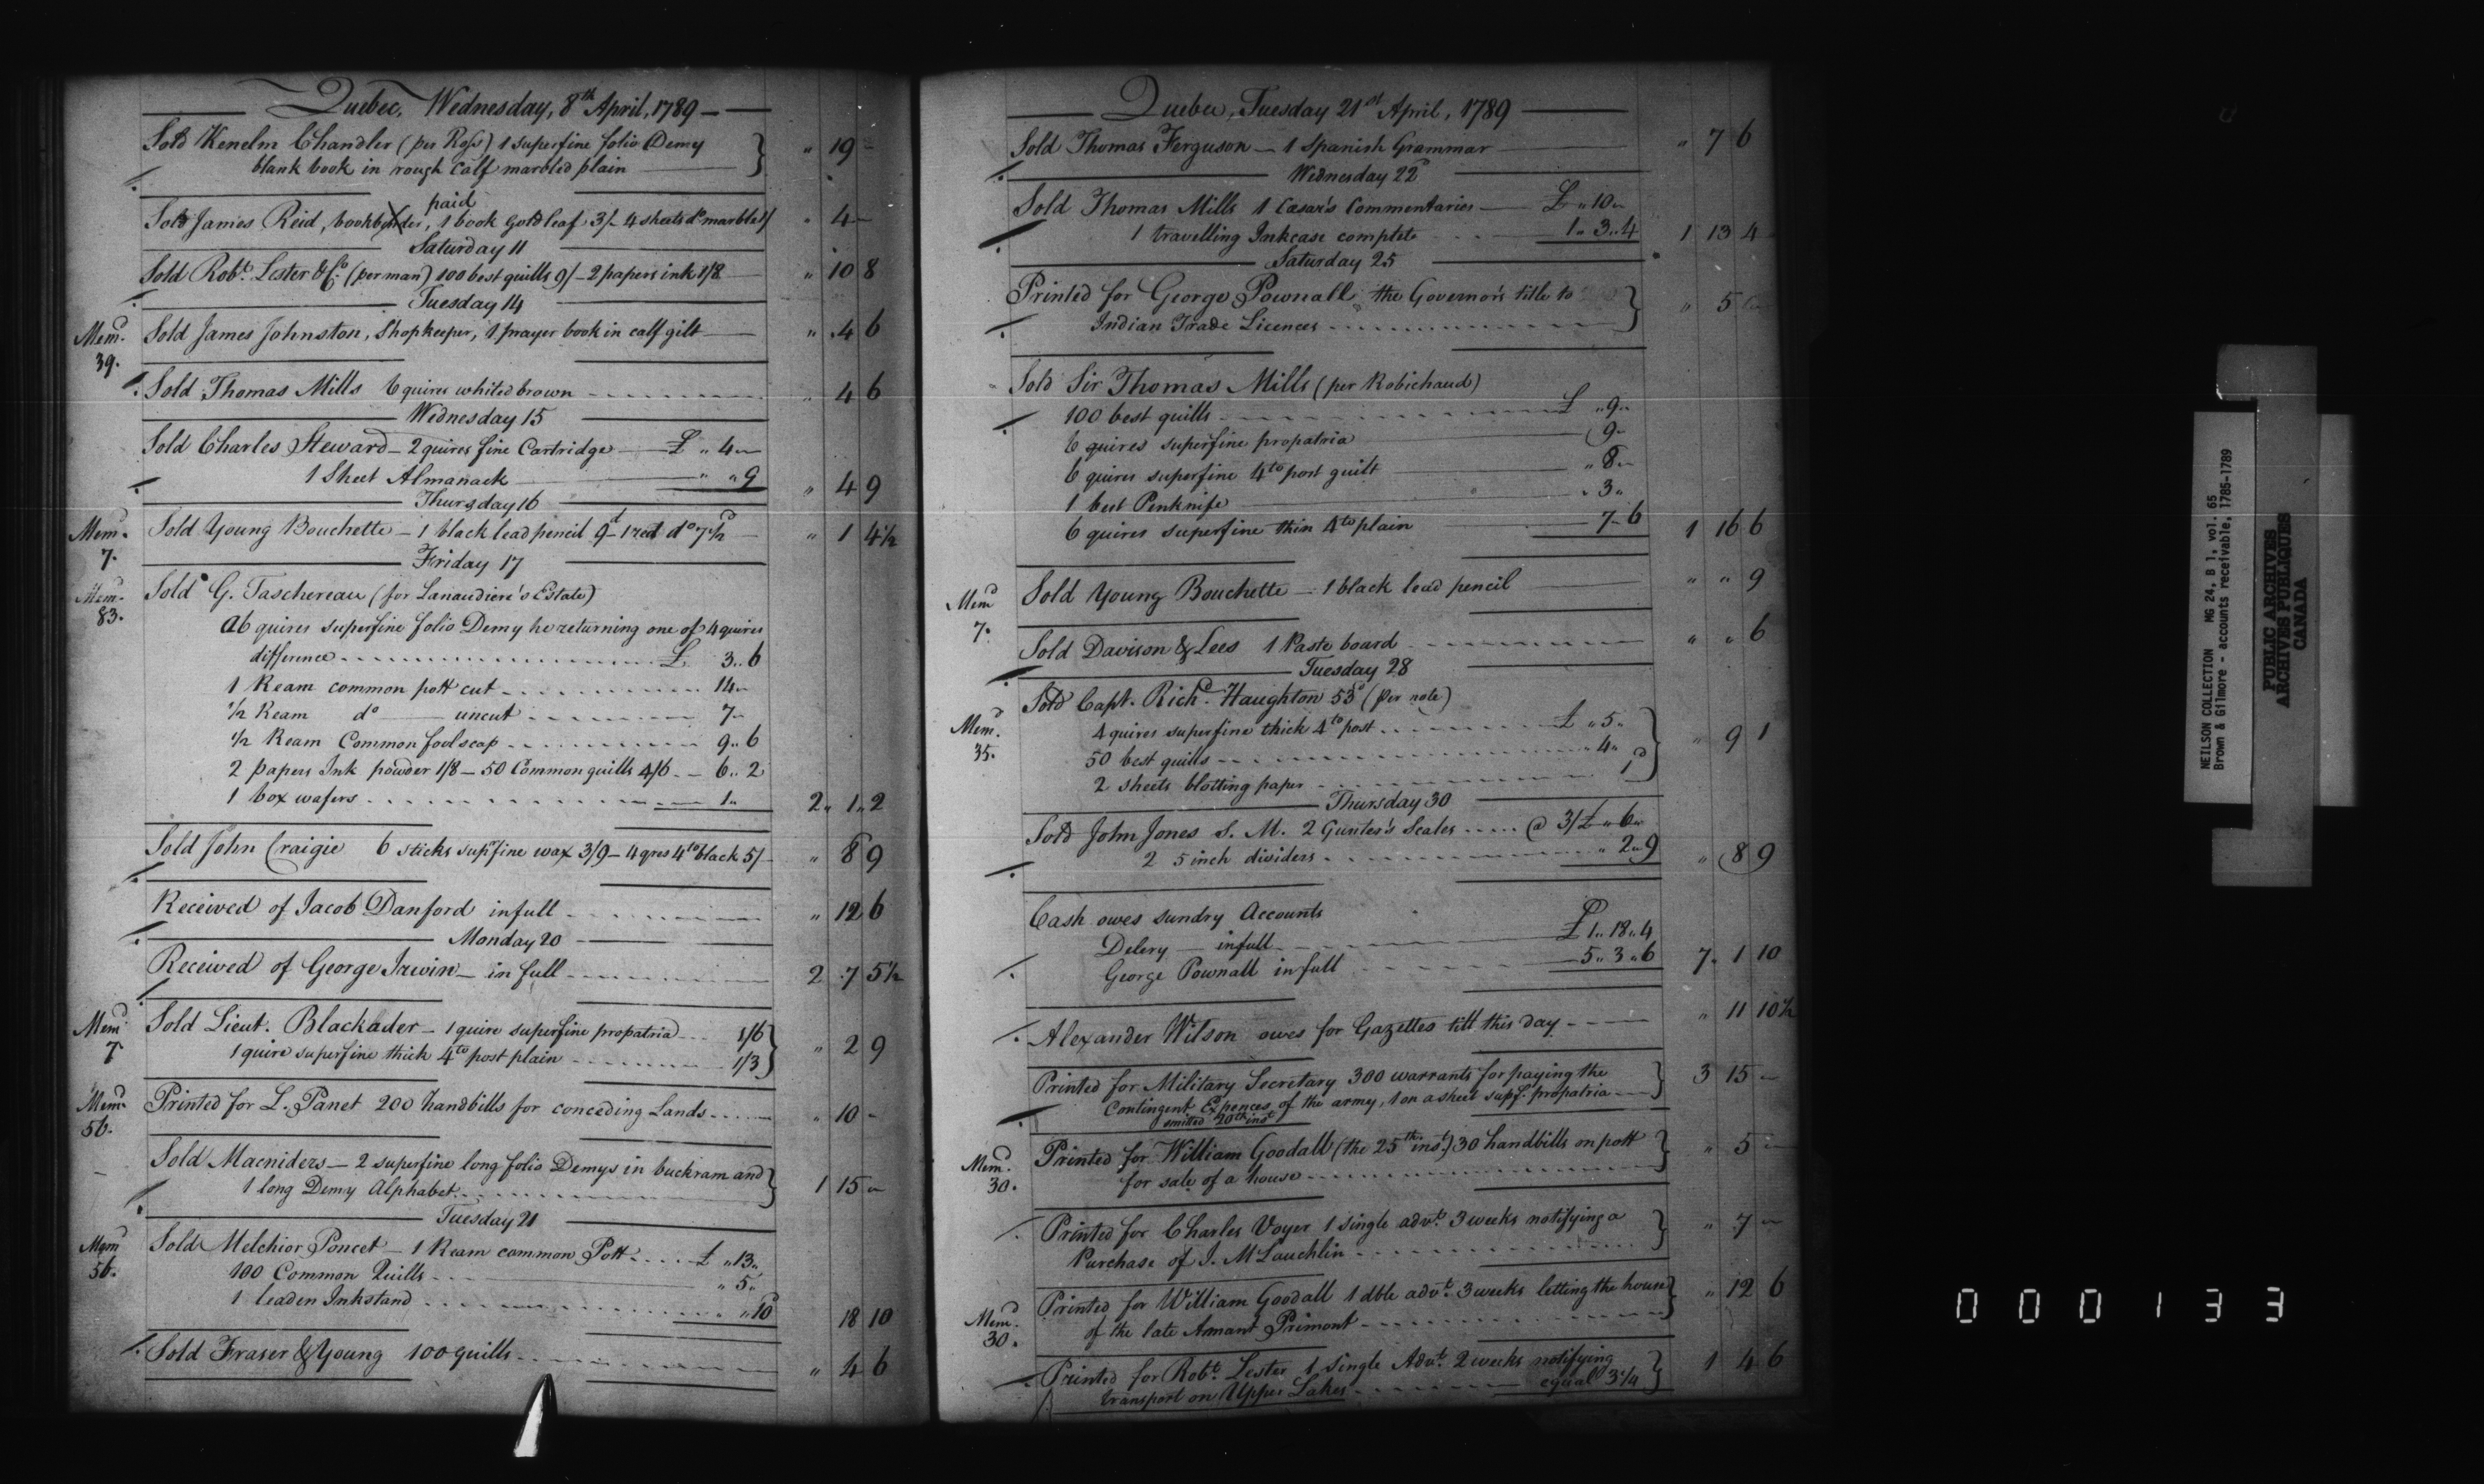 Quebec, Wednesday, 8th April, 1789
Sold Kenelm Chandler (per Ross) 1 superfine folio Demy
blank book in rough Calf marbled plain } " 19 -
paid
Sold James Reid, bookbinder, 1 book Gold leaf 3/- 4 sheets do marble 1/ " 4 -
Saturday 11
Sold Robt. Lester & Co. (per man) 100 best quills 9/- 2 papers ink 1/8 " 10 8
Tuesday 14
Memd. 39. Sold James Johnston, Shopkeeper, 1 prayer book in calf gilt " 4 6
Sold Thomas Mills 6 quires whited brown " 4 6
Wednesday 15
Sold Charles Steward - 2 quires fine Cartridge £ " 4 "
1 Sheet Almanack " " 9 " 4 9
Thursday 16
Memd. 7. Sold Young Bouchette - 1 black lead pencil 9d - 1 red do 7½d " 1 4½
Friday 17
Memd. 83. Sold G. Taschereau (for Lanaudiere's Estate)
a 6 quires superfine folio Demy he returning one of 4 quires
difference £ 3 " 6
1 Ream common pott cut 14 "
½ Ream do uncut 7 "
½ Ream Common foolscap 9 " 6
2 papers Ink powder 1/8 - 50 Common quills 4/6 - 6 " 2
1 box wafers 1 " 2 " 1 " 2
Sold John Craigie 6 sticks supfine wax 3/9 - 4 qres 4to black 5/- " 8 9
Received of Jacob Danford in full " 12 6
Monday 20
Received of George Irwin - in full 2 7 5½
Memd. 7 Sold Lieut. Blackader - 1 quire superfine propatria 1/6
1 quire superfine thick 4to post plain 1/3 } " 2 9
Memd. 56. Printed for L. Panet 200 handbills for conceding Lands " 10 -
Sold Macniders - 2 superfine long folio Demys in buckram and
1 long Demy Alphabet } 1 15 "
Tuesday 21
Memd. 56. Sold Melchior Poncet - 1 Ream common Pott £ " 13 "
100 Common Quills " 5 "
1 leaden Inkstand " " 10 18 10
Sold Fraser & Young 100 quills " 4 6
Quebec, Tuesday 21st April, 1789
Sold Thomas Ferguson - 1 Spanish Grammar " 7 6
Wednesday 22d
Sold Thomas Mills 1 Caesar's Commentaries £ " 10 "
1 travelling Inkcase complete 1 " 3 " 4 1 13 4
Saturday 25
Printed for George Pownall the Governor's title to
Indian Trade Licences } " 5
Sold Sir Thomas Mills (per Robichaud)
100 best quills £ " 9 "
6 quires superfine propatria 9 "
6 quires superfine 4to post guilt " 8 "
1 best Penknife " 3 "
6 quires superfine thin 4to plain 7 - 6 1 16 6
Memd 7. Sold Young Bouchette - 1 black lead pencil " " 9
Sold Davison & Lees 1 Paste board " " 6
Tuesday 28
Memd. 35. Sold Capt. Richd. Haughton 53d (per note)
4 quires superfine thick 4to post £ " 5 "
50 best quills " 4 "
2 sheets blotting paper 1d } " 9 1
Thursday 30
Sold John Jones S. M. 2 Gunter's Scales @ 3/ £ " 6 "
2 5 inch dividers " 2 " 9 " 8 9
Cash owes sundry Accounts
Delery - in full £ 1 " 18 " 4
George Pownall in full 5 " 3 " 6 7 " 1 10
Alexander Wilson owes for Gazettes till this day " 11 10½
Printed for Military Secretary 300 warrants for paying the
Contingent Expences of the army, 1 on a sheet supf. propatria } 3 15 -
omitted 20th inst
Memd. 30. Printed for William Goodall (the 25th inst.) 30 handbills on pott
for sale of a house } " 5 -
Printed for Charles Voyer 1 single advt. 3 weeks notifying a
Purchase of J. McLauchlin } " 7 -
Memd. 30. Printed for William Goodall 1 dble advt. 3 weeks letting the house
of the late Amant Primont } " 12 6
Printed for Robt. Lester 1 Single Advt. 2 weeks notifying
transport on Upper Lakes equal 3¼ } 1 4 6
NEILSON COLLECTION MG 24, B 1, vol. 65
Brown & Gilmore - accounts receivable, 1785-1789
PUBLIC ARCHIVES
ARCHIVES PUBLIQUES
CANADA
000133